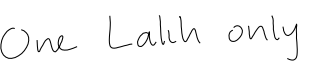 One Lakh only